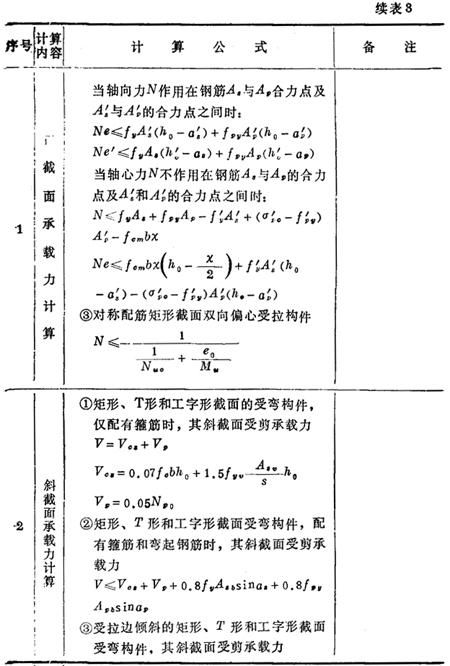 续表3
序号 计算内容 计算公式 备注
1
正截面承载力计算
当轴向力N作用在钢筋Aₛ与Aₚ合力点及
A′ₛ与A′ₚ的合力点之间时:
Ne≤f_yA′ₛ(h₀-a′ₛ)+f_pyA′ₚ(h₀-a′ₚ)
Ne′≤f_yAₛ(h′₀-aₛ)+f_pyAₚ(h′₀-aₚ)
当轴心力N不作用在钢筋Aₛ与Aₚ的合力
点及A′ₛ和A′ₚ的合力点之间时:
N≤f_yAₛ+f_pyAₚ-f′_yA′ₛ+(σ′_p0-f′_py)
A′ₚ-f_cmbx
Ne≤f_cmbx(h₀-x/2)+f′_yA′ₛ(h₀
-a′ₛ)-(σ′_p0-f′_py)A′ₚ(h₀-a′ₚ)
③对称配筋矩形截面双向偏心受拉构件
N≤1/(1/N_u0+e₀/M_u)
2
斜截面承载力计算
①矩形、T形和工字形截面的受弯构件,
仅配有箍筋时,其斜截面受剪承载力
V=V_cs+V_p
V_cs=0.07f_cbh₀+1.5f_yv A_sv/s h₀
V_p=0.05N_p0
②矩形、T形和工字形截面受弯构件,配
有箍筋和弯起钢筋时,其斜截面受剪承
载力
V≤V_cs+V_p+0.8f_yA_sbsinaₛ+0.8f_py
A_pbsinaₚ
③受拉边倾斜的矩形、T形和工字形截面
受弯构件,其斜截面受剪承载力